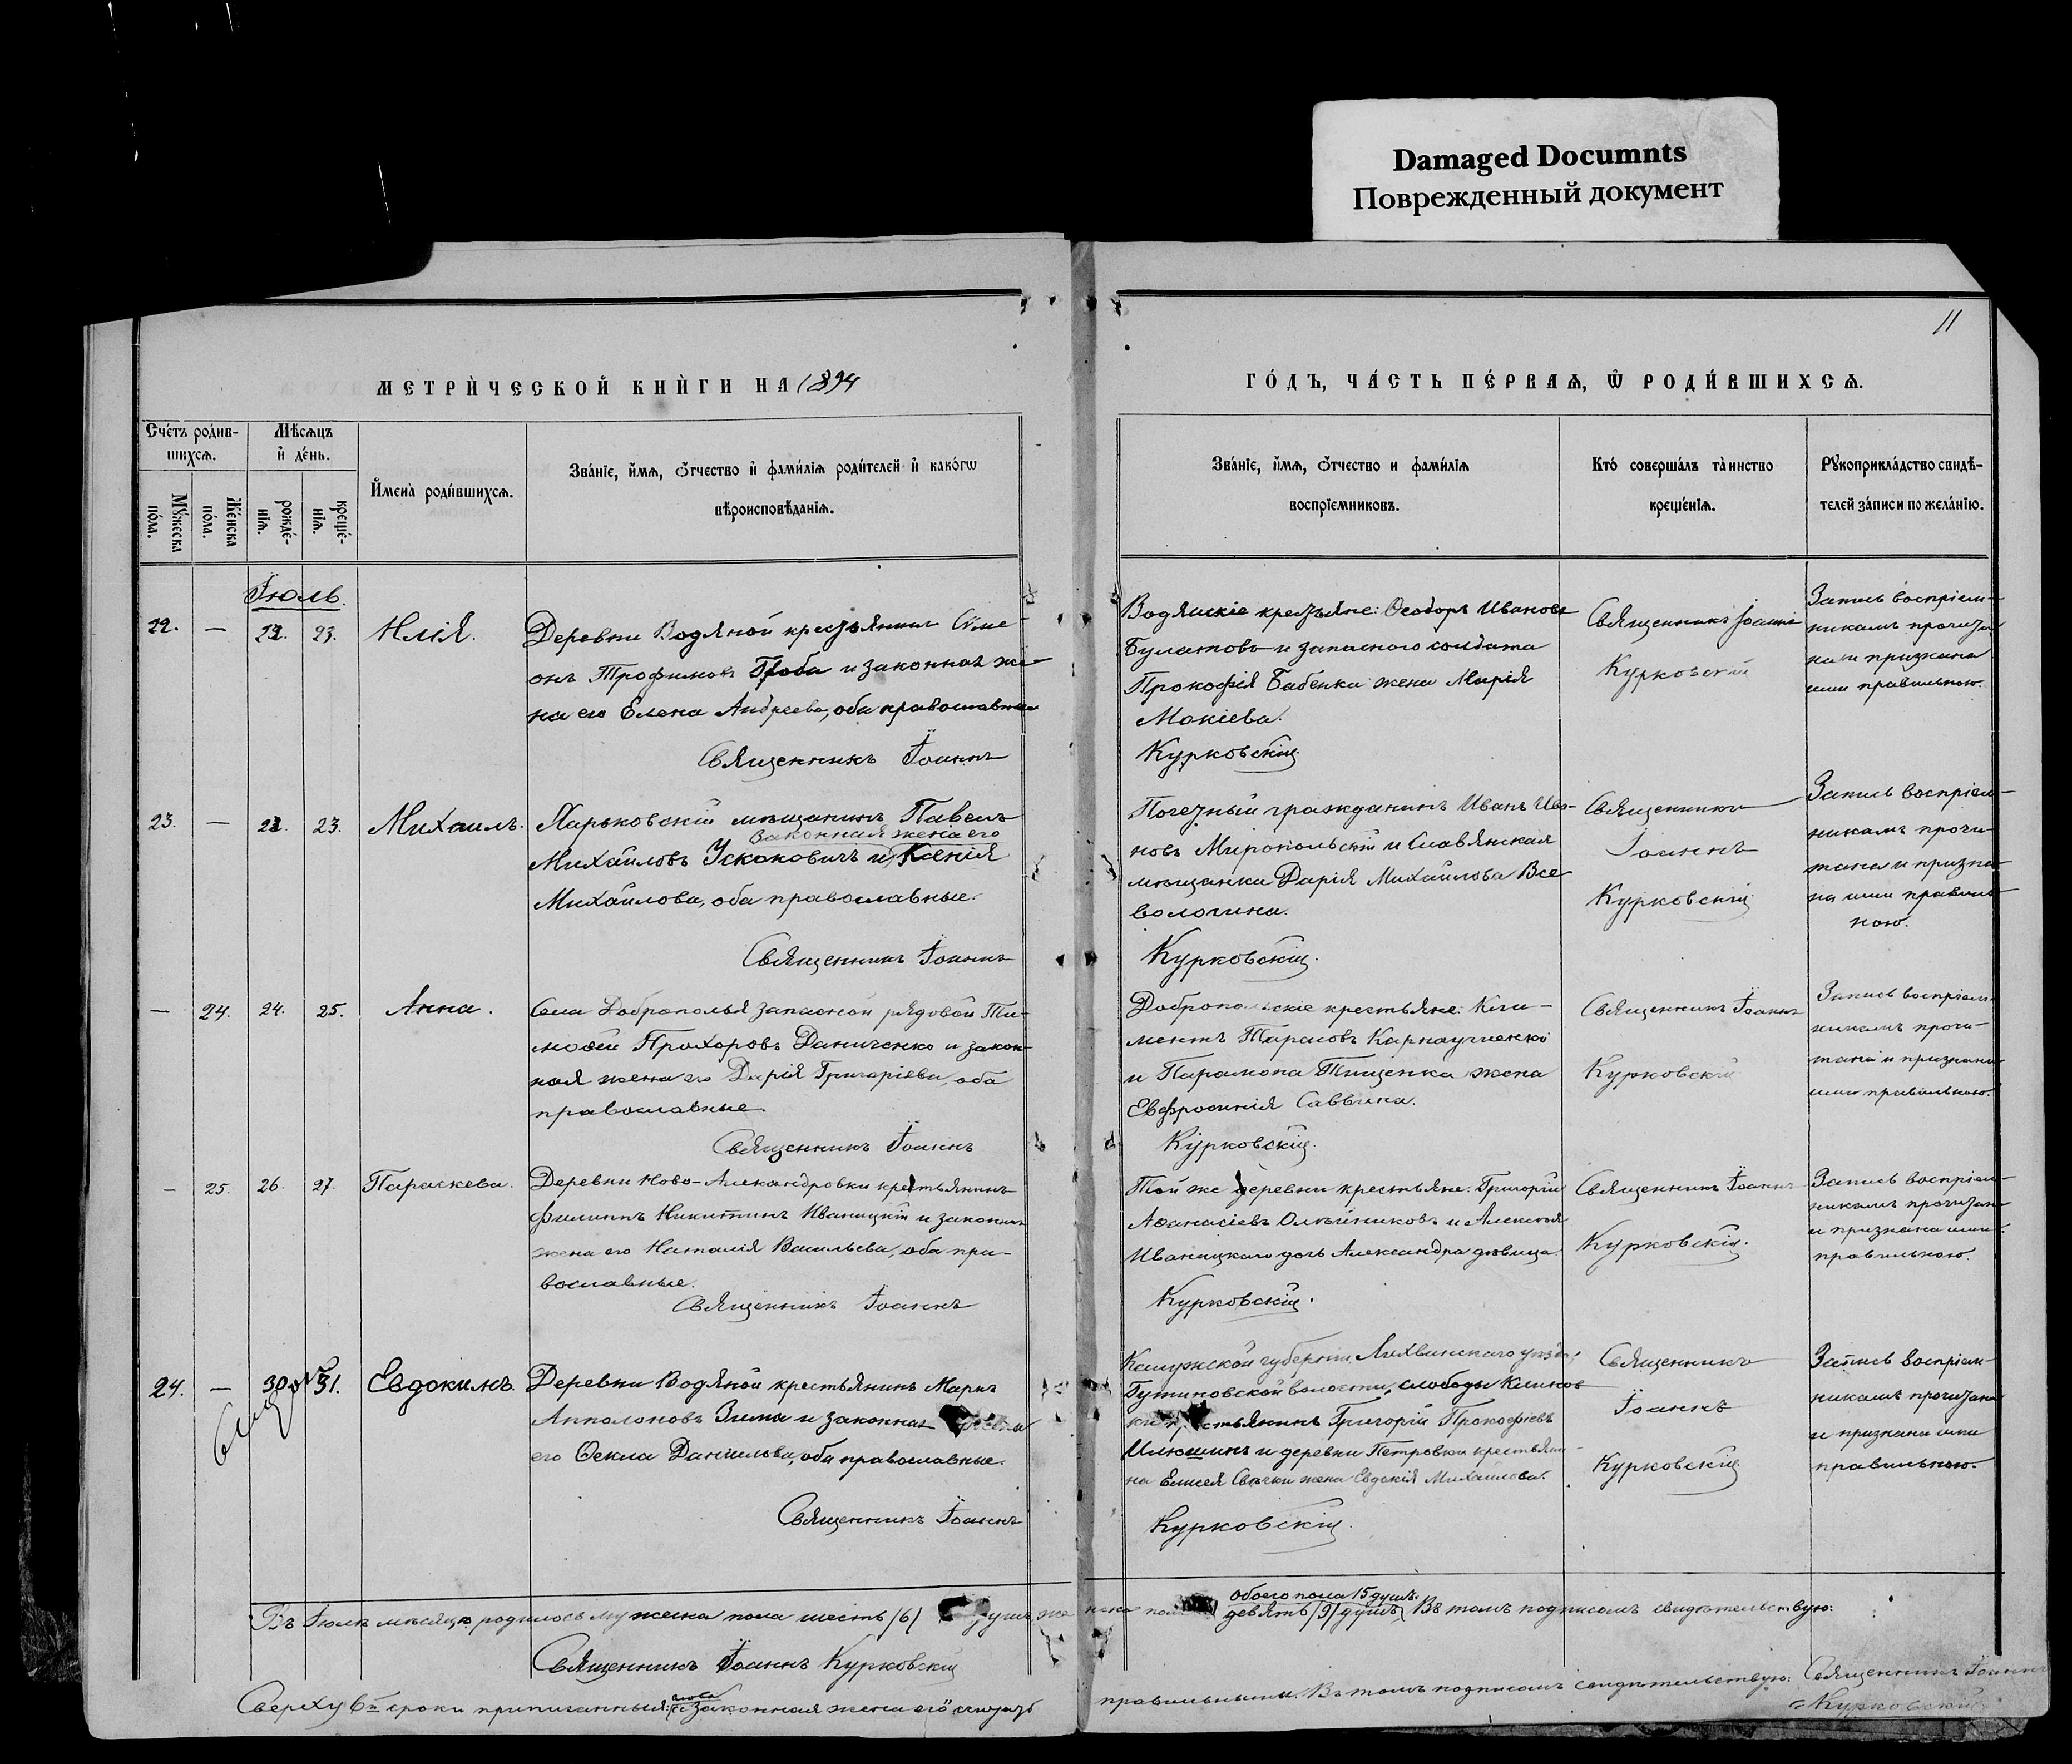 Damaged Documnts
Поврежденный документ
11
МЕТРИ́ЧЕСКОЙ КНИ́ГИ НА 1894
ГО́ДЪ, ЧА́СТЬ ПЕ́РВАЯ, Ѡ҆ РОДИ́ВШИХСЯ.
Сче́тъ роди́в-
шихсѧ.
Мѣ́сѧцъ
и҆ де́нь.
Мꙋ́жеска
по́ла.
Же́нска
по́ла.
рожде́-
нїѧ.
креще́-
нїѧ.
И҆мена̀ роди́вшихсѧ.
Зва́нїе, и҆́мѧ, ѻ҆́тчество и҆ фами́лїѧ роди́телей и҆ како́гѡ
вѣроисповѣ́данїѧ.
Зва́нїе, и҆́мѧ, ѻ҆́тчество и фами́лїѧ
воспрїе́мниковъ.
Кто́ соверша́лъ та̀инство
креще́нїѧ.
Рꙋкоприкла́дство свидѣ́-
телей за́писи по жела́нїю.
Іюль.
22. — 22. 23. Илія.
Деревни Водяной крестьянинъ Симе-
онъ Трофимовъ Гроба и законная же-
на его Елена Андреева, оба православные
Священникъ Іоаннъ
Водянскіе крестьяне: Ѳеодоръ Ивановъ
Булатовъ и запаснаго солдата
Прокофія Бабенка жена Марія
Мокіева.
Курковскій
Священникъ Іоаннъ
Курковскій
Запись воспріем-
никамъ прочита-
на и признана
ими правильною.
23. — 22. 23. Михаилъ.
Харьковскій мѣщанинъ Павелъ
законная жена его
Михайловъ Ускоковичъ и Ксенія
Михайлова, оба православные.
Священникъ Іоаннъ
Почетный гражданинъ Иванъ Ива-
новъ Миропольскій и Славянская
мѣщанка Дарія Михайлова Все-
вологина.
Курковскій.
Священникъ
Іоаннъ
Курковскій
Запись воспріем-
никамъ прочи-
тана и призна-
на ими правиль-
ною.
— 24. 24. 25. Анна.
Села Доброполья запасной рядовой Ти-
моѳей Прохоровъ Даниченко и закон-
ная жена его Дарія Григоріева, оба
православные.
Священникъ Іоаннъ
Добропольскіе крестьяне: Кли-
ментъ Тарасовъ
и Парамона Тищенка жена
Евфросинія Саввина.
Курковскій.
Священникъ Іоаннъ
Курковскій
Запись воспріем-
никамъ прочи-
тана и признана
ими правильною.
— 25. 26. 27. Параскева.
Деревни Ново-Александровки крестьянинъ
Филиппъ Никитинъ Иваницкій и законная
жена его Наталія Васильева, оба пра-
вославные.
Священникъ Іоаннъ
Той же деревни крестьяне: Григорій
Аѳанасіевъ Олейниковъ и Алексѣя
Иваницкаго дочь Александра дѣвица.
Курковскій.
Священникъ Іоаннъ
Курковскій.
Запись воспріем-
никамъ прочитана
и признана ими
правильною.
24. — 30. 31. Евдокимъ.
Деревни Водяной крестьянинъ Маркъ
Апполоновъ Зима и законная жена
его Ѳекла Даніилова, оба православные.
Священникъ Іоаннъ
Калужской губерніи, Лихвинскаго уѣзда,
волости, слободы
крестьянинъ Григорій Прокофіевъ
Илюшинъ и деревни Петровки крестьяни-
на Елисея Свѣчки жена Евдокія Михаилова.
Курковскій.
Священникъ
Іоаннъ
Курковскій
Запись воспріем-
никамъ прочитана
и признана ими
правильною.
обоего пола 15 душъ.
Въ Іюлѣ мѣсяцѣ родилось мужеска пола шесть /6/ душъ, женска пола девять /9/ душъ, Въ томъ подписомъ свидѣтельствую:
Священникъ Іоаннъ Курковскій
слова
Сверху 6й строки приписанныя: „законная жена его“ считать правильными. Въ томъ подписомъ свидѣтельствую: Священникъ Іоаннъ
Курковскій